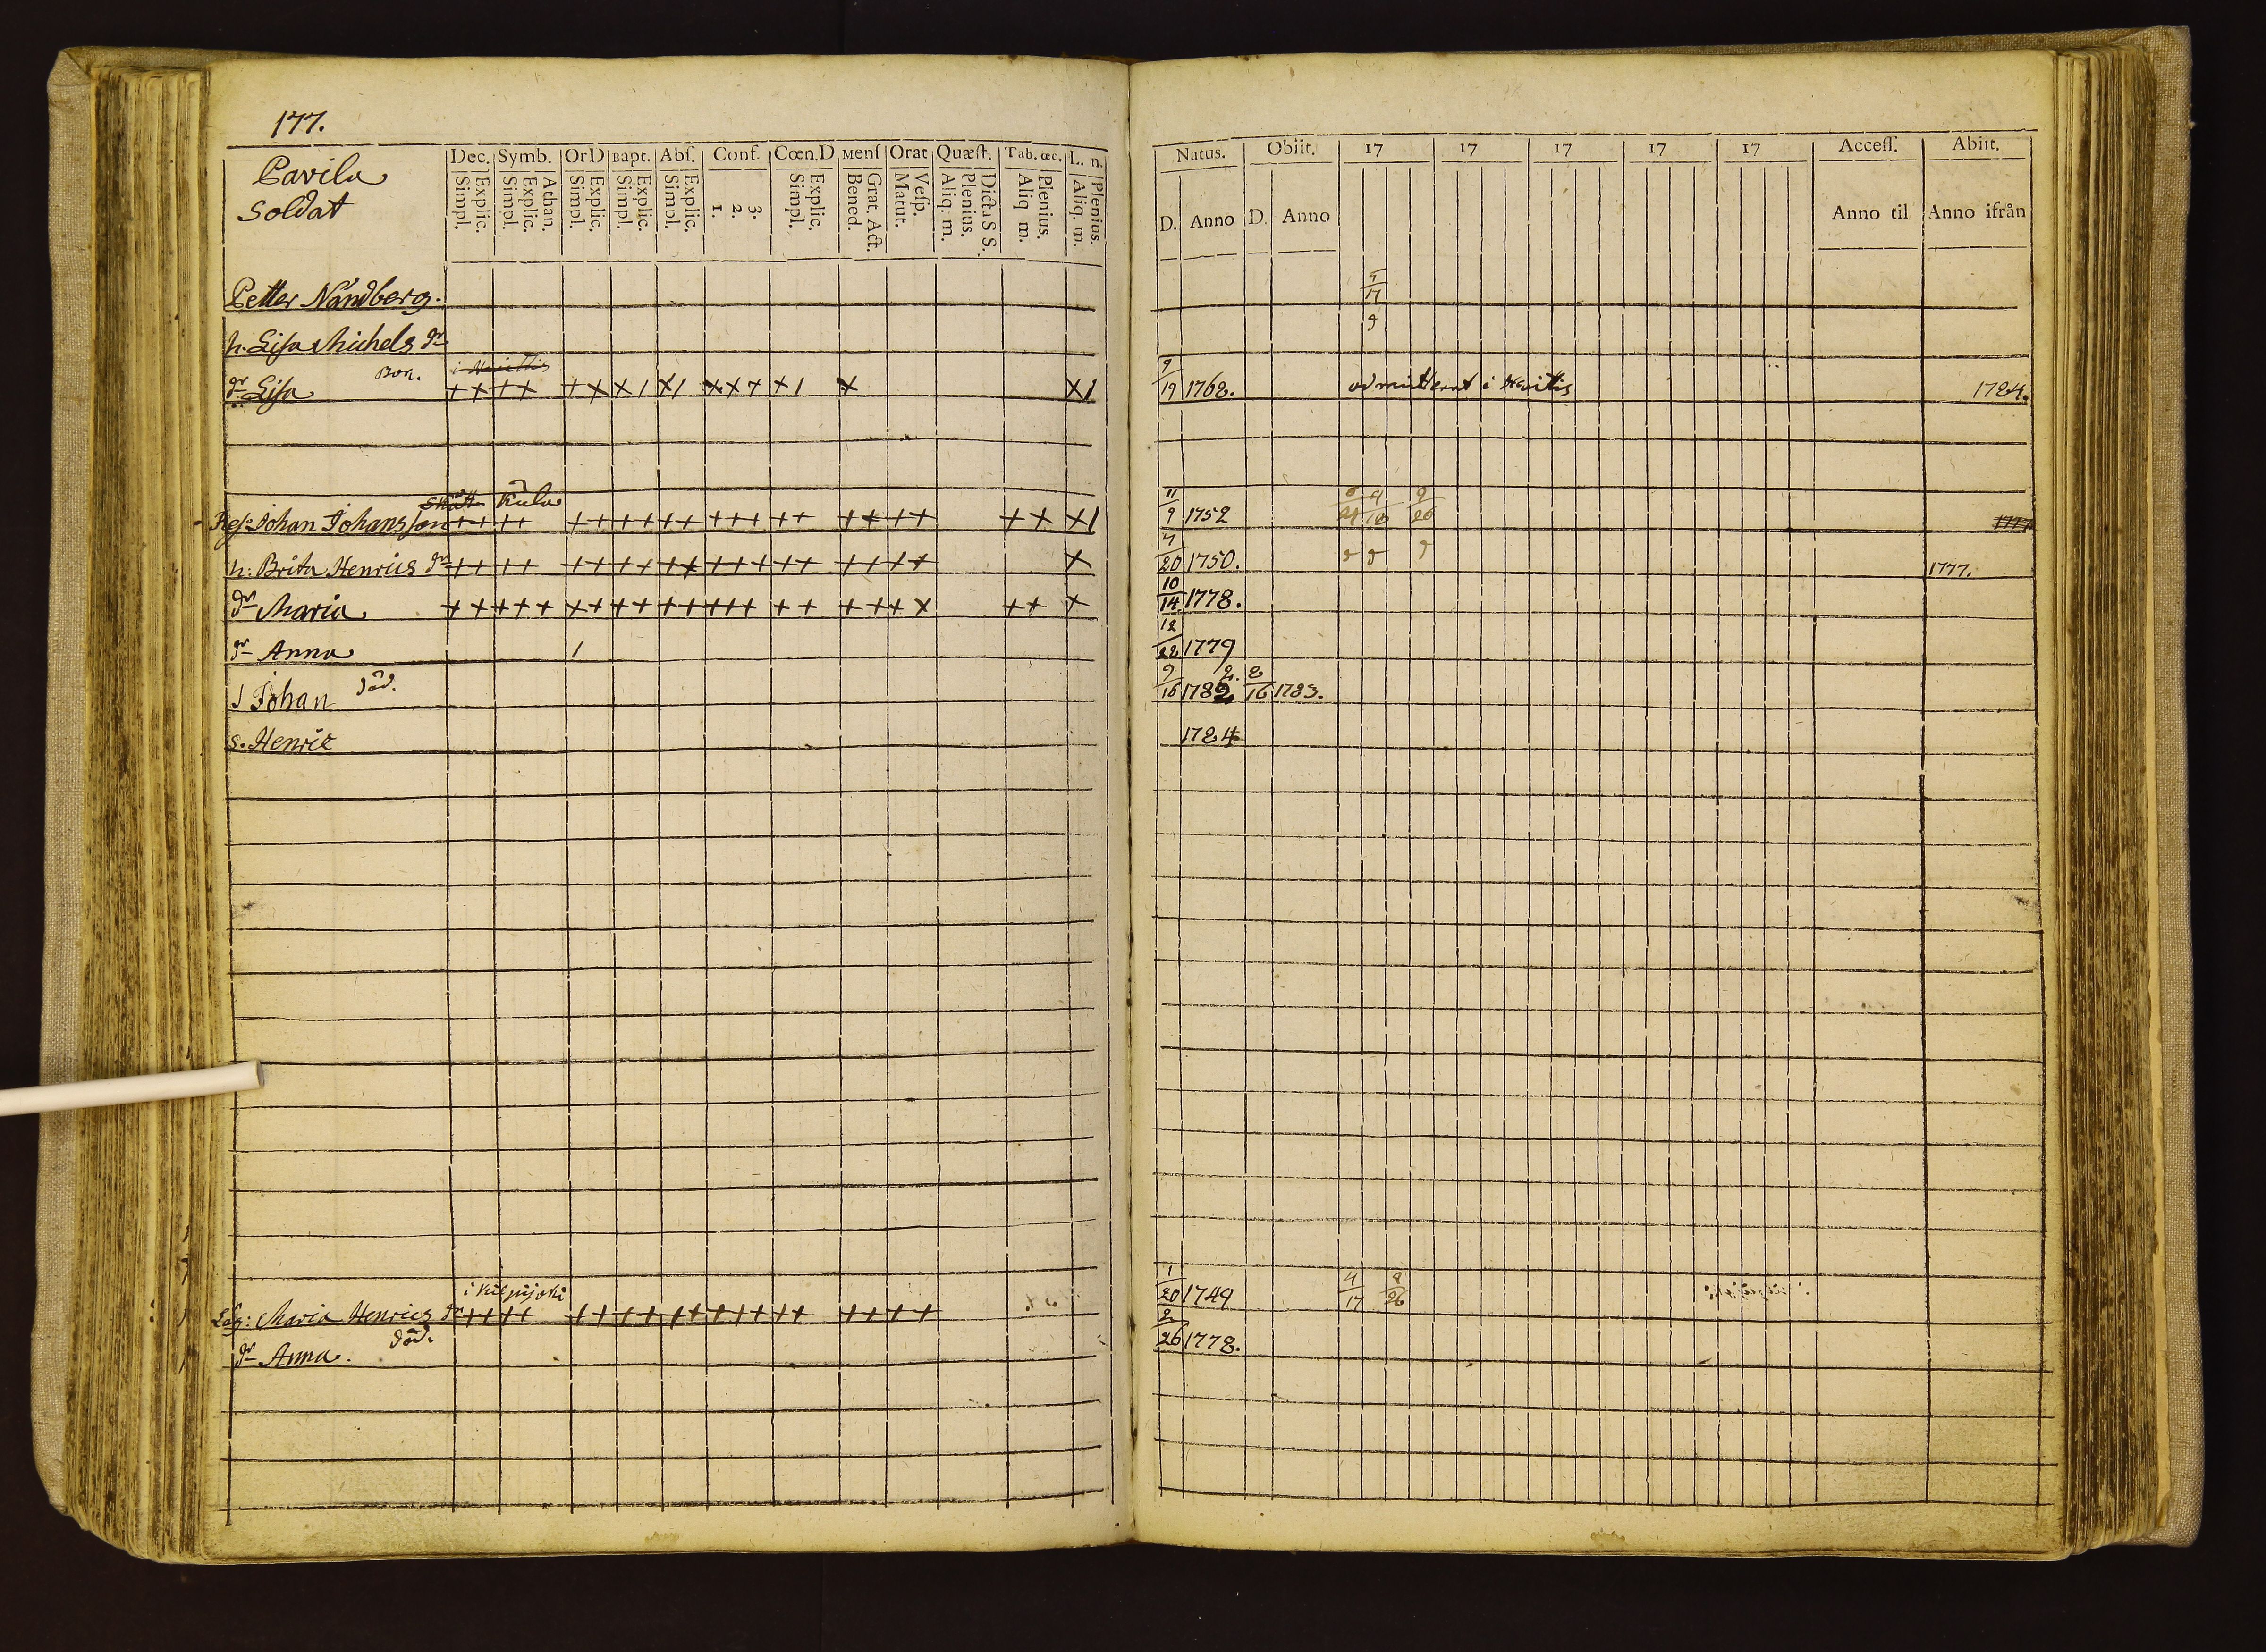 177.
Pavila
Soldat
Dec. Symb. OrD Bapt. Abſ. Conf. Cœn.D Menſ Orat Quæſt. Tab. œc. L. n.
Simpl. Explic. Simpl. Explic. Athan. Simpl. Explic. Simpl. Explic. Simpl. Explic. 1. 2. 3. Simpl. Explic. Bened. Grat. Act. Matut. Veſp. Aliq. m. Plenius. Dicta S S. Aliq m. Plenius. Aliq. m. Plenius.
Petter Nändberg.
h. Lisa Michels dr
dr Lisa
+ + + + + x x 1 x 1 x x + x 1 x x 1
skått Kula
Johan Johansson ++ ++ ++ ++ ++ +++ ++ ++ ++ ++ x1
h: Brita Henrics dr ++ ++ ++ ++ ++ +++ ++ ++ ++ x
dr Maria ++ +++ x+ ++ ++ +++ ++ ++ +x ++ +
dr Anna 1
s Johan död.
s. Henric
i Kilpijoki
Maria Henrics dr ++ ++ ++ ++ ++ +++ ++ ++ ++
dr Anna. död.
Natus. Obiit. 17 17 17 17 17 Acceſſ. Abiit.
D. Anno D. Anno Anno til Anno ifrån
5/17
9
9/19 1768. admitterat i 1784.
11/9 1752 1777
7/20 1750. 1777.
10/14 1778.
12/22 1779
9/16 1782 2. 8/16 1783.
1784
1/20 1749 4/17 9/26
2/26 1778.